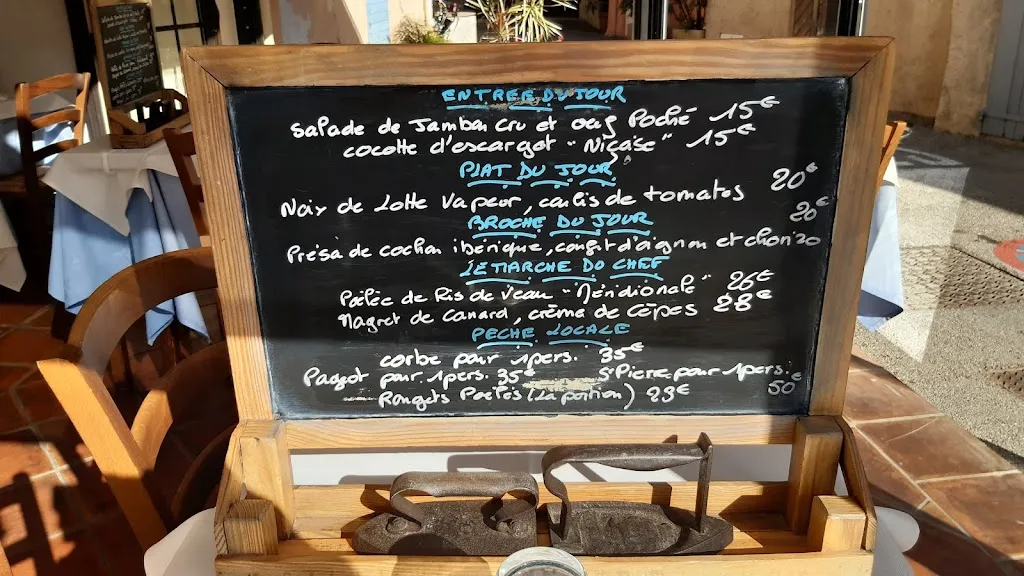 ENTREE DU JOUR
Salade de Jambon Cru et oeuf Poché 15€
cocotte d'escargot "Niçoise" 15€
PLAT DU JOUR
Noix de Lotte Vapeur, coulis de tomates 20€
BROCHE DU JOUR 20€
Présa de cochon ibérique, confit d'oignon et chorizo
LE MARCHE DU CHEF
Poêlée de Ris de Veau "Méridionale" 26€
Magret de Canard, crème de cèpes 28€
PECHE LOCALE
corbe pour 1pers. 35€
Pageot pour 1pers. 35€ St Pierre pour 1pers.:
Rougets Poêlés (La portion) 23€ 50€